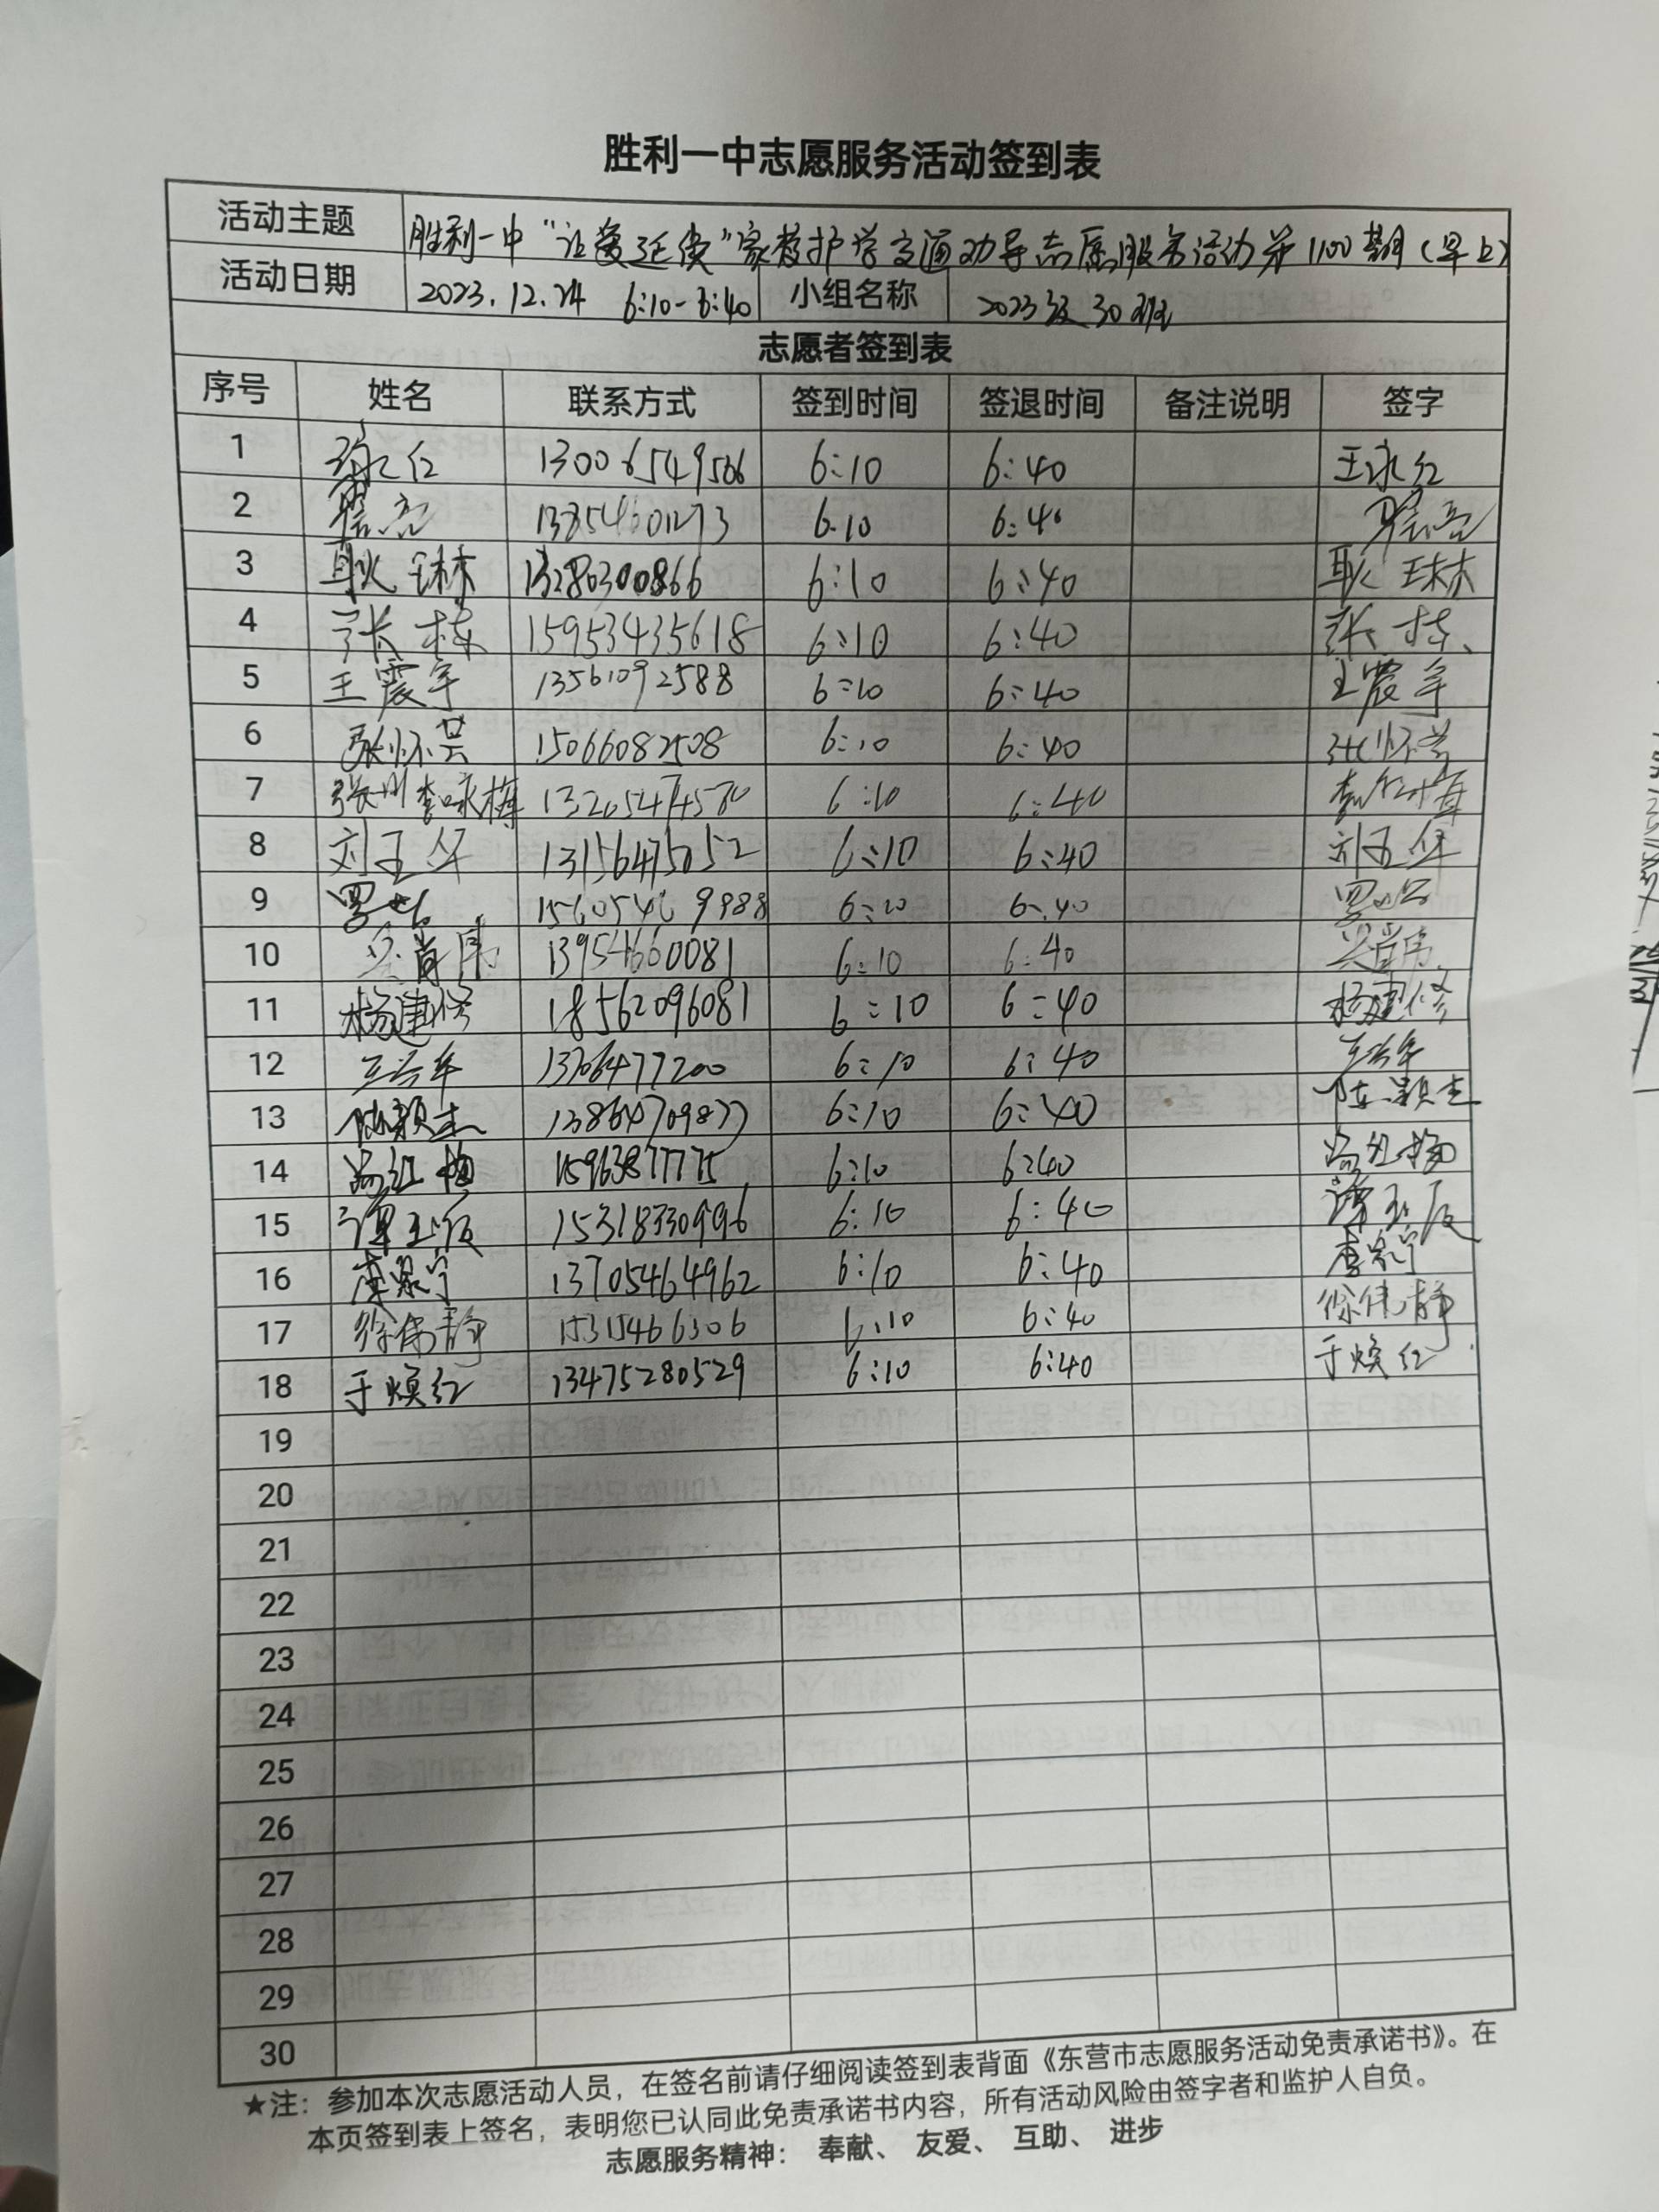 胜利一中志愿服务活动签到表
活动主题 胜利一中“让爱延续”家校护学交通劝导志愿服务活动第1100期(早上)
活动日期 2023.12.24 6:10-6:40 小组名称 2023级30班
志愿者签到表
序号 姓名 联系方式 签到时间 签退时间 备注说明 签字
1 13006549506 6:10 6:40 王咏红
2 13854601273 6:10 6:40
3 耿琳 13280300866 6:10 6:40 耿琳
4 张栋 15953435618 6:10 6:40 张栋
5 王震宇 13561092588 6:10 6:40 王震宇
6 张怀芸 15066082508 6:10 6:40 张怀芸
7 6:10 6:40
8 刘玉华 13156475052 6:10 6:40 刘玉华
9 6:10 6:40
10 6:10 6:40
11 杨建修 18562096081 6:10 6:40 杨建修
12 13706477200 6:10 6:40
13 陈颖杰 6:10 6:40 陈颖杰
14 15963877775 6:10 6:40
15 15318330996 6:10 6:40
16 13705464962 6:10 6:40
17 徐伟静 6:10 6:40 徐伟静
18 于焕红 13475280529 6:10 6:40 于焕红
19
20
21
22
23
24
25
26
27
28
29
30
★注：参加本次志愿活动人员，在签名前请仔细阅读签到表背面《东营市志愿服务活动免责承诺书》。在
本页签到表上签名，表明您已认同此免责承诺书内容，所有活动风险由签字者和监护人自负。
志愿服务精神： 奉献、 友爱、 互助、 进步